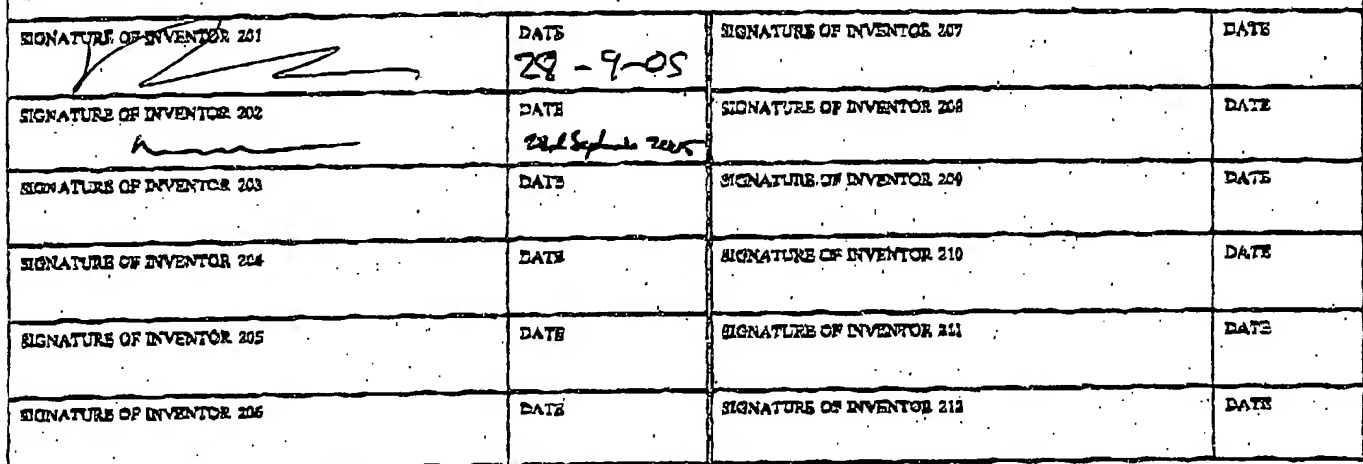 SIGNATURE OF INVENTOR 201 DATE SIGNATURE OF INVENTOR 207 DATE
28-9-05
SIGNATURE OF INVENTOR 202 DATE SIGNATURE OF INVENTOR 208 DATE
September 2005
SIGNATURE OF INVENTOR 203 DATE SIGNATURE OF INVENTOR 209 DATE
SIGNATURE OF INVENTOR 204 DATE SIGNATURE OF INVENTOR 210 DATE
SIGNATURE OF INVENTOR 205 DATE SIGNATURE OF INVENTOR 211 DATE
SIGNATURE OF INVENTOR 206 DATE SIGNATURE OF INVENTOR 212 DATE